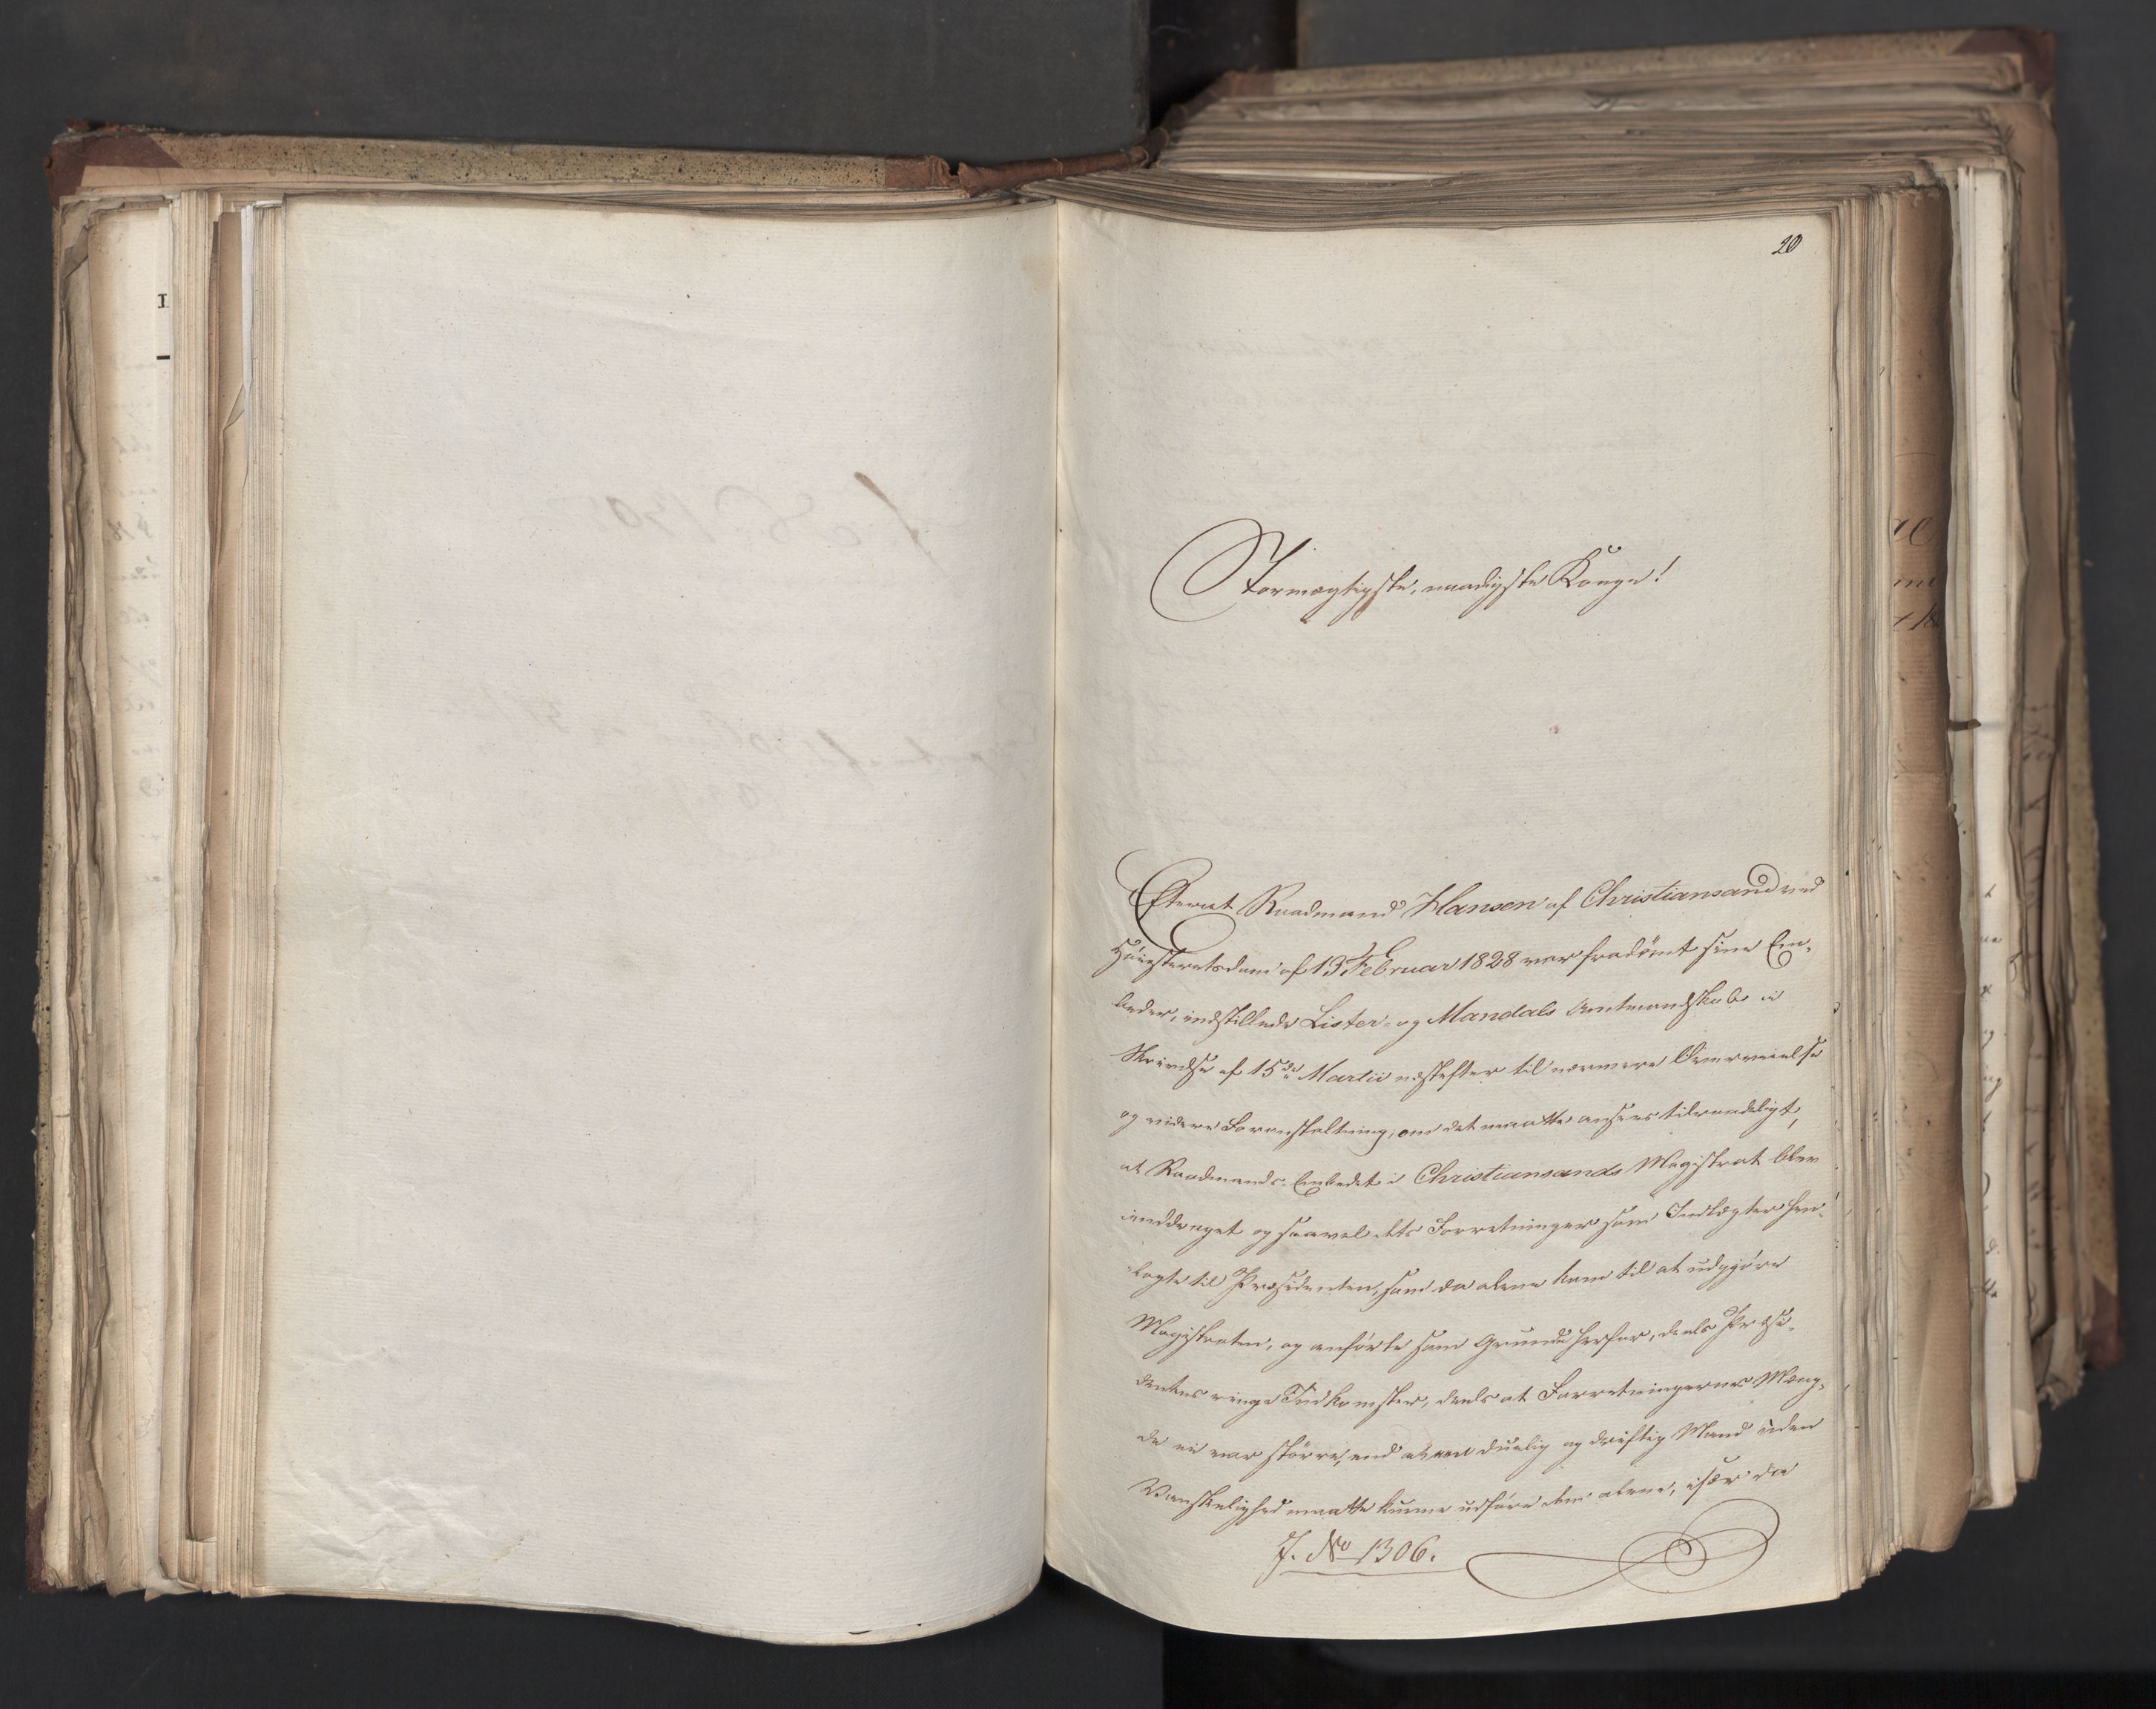 20
Stormægtigste, naadigste Konge!
Efterat Raadmand Hansen af Christiansand ved
Høiesteretsdom af 13 Februar 1828 var fradömt sine Em-
beder, indstillede Lister- og Mandals Amtmandskab i
Skrivelse af 15de Martii næstefter til nærmere Overveielse
og videre Foranstaltning, om det maatte ansees tilraadeligt,
at Raadmands-Embedet i Christiansands Magistrat blev
inddraget og saavel dets Forretninger som Indtægter hen-
lagte til Præsidenten, som da alene kom til at udgjøre
Magistraten, og anførte som Grunde herfor, deels Præsi-
dentens ringe Indkomster, deels at Forretningernes Mæng-
de ei var större, end at en duelig og driftig Mand uden
Vanskelighed maatte kunne udføre dem alene, især da
J. No 1306.